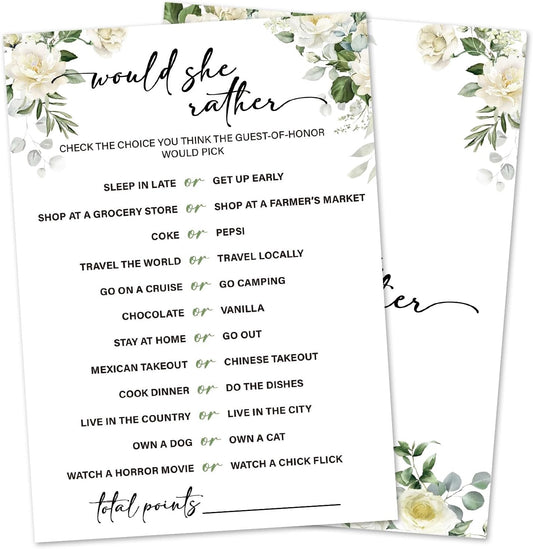 would she
rather
CHECK THE CHOICE YOU THINK THE GUEST-OF-HONOR
WOULD PICK
SLEEP IN LATE or GET UP EARLY
SHOP AT A GROCERY STORE or SHOP AT A FARMER'S MARKET
COKE or PEPSI
TRAVEL THE WORLD or TRAVEL LOCALLY
GO ON A CRUISE or GO CAMPING
CHOCOLATE or VANILLA
STAY AT HOME or GO OUT
MEXICAN TAKEOUT or CHINESE TAKEOUT
COOK DINNER or DO THE DISHES
LIVE IN THE COUNTRY or LIVE IN THE CITY
OWN A DOG or OWN A CAT
WATCH A HORROR MOVIE or WATCH A CHICK FLICK
total points